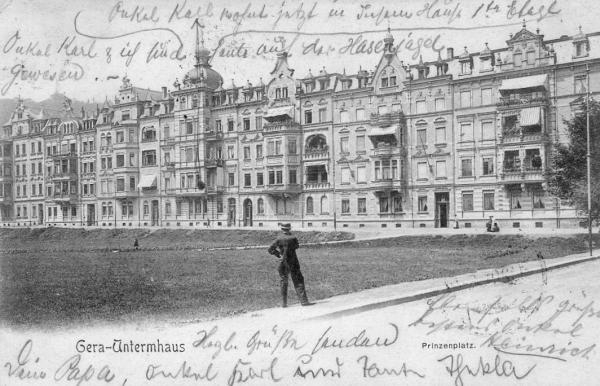 Onkel Karl wohnt jetzt in diesem Haus 1te Etage
Onkel Karl & ich sind heute auf der Hasenjagd
Gewesen
Gera-Untermhaus
Prinzenplatz.
Hagl. Grüße senden
Dein Papa, Onkel Karl und Tante Thekla
grüß
Onkel
Heinrich